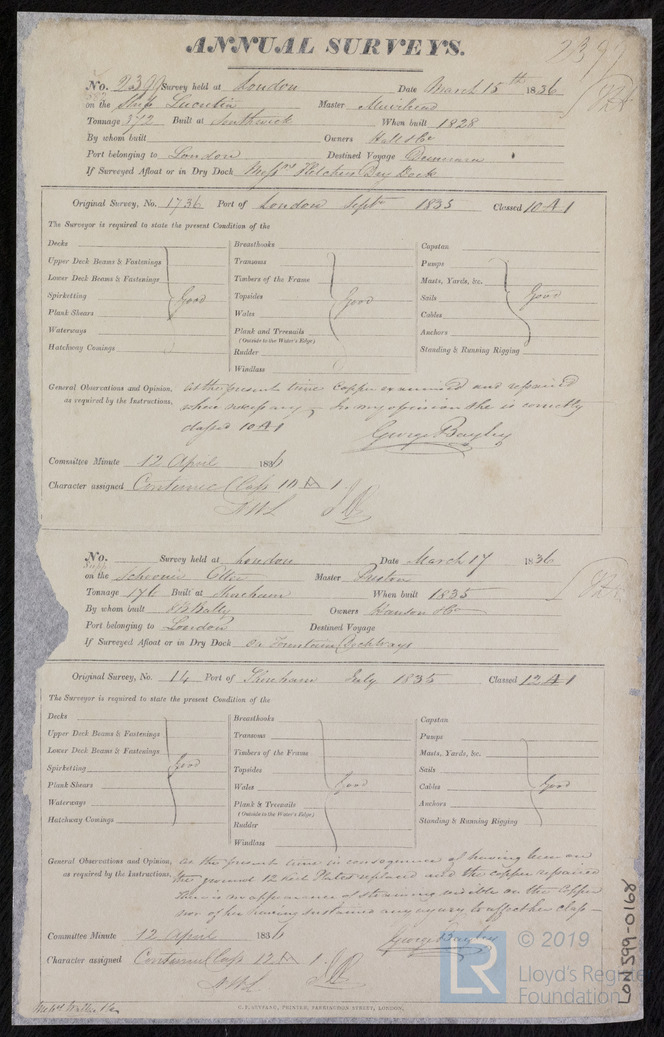 ANNUAL SURVEYS.
2399
No. 2399 Survey held at London Date March 15th 1836
on the Ship Lucretia Master Muirhead
Tonnage 372 Built at Southwick When built 1828
By whom built Owners Hall & Co
Port belonging to London Destined Voyage Demerara
If Surveyed Afloat or in Dry Dock Messrs Fletchers Dry Dock
Original Survey, No. 1736 Port of London Septr 1835 Classed 10 A 1
The Surveyor is required to state the present Condition of the
Decks Breasthooks Capstan
Upper Deck Beams & Fastenings Transoms Pumps
Lower Deck Beams & Fastenings Timbers of the Frame Masts, Yards, &c.
Spirketting Good Topsides Good Sails Good
Plank Shears Wales Cables
Waterways Plank and Treenails Anchors
(Outside to the Water's Edge)
Hatchway Comings Rudder Standing & Running Rigging
Windlass
General Observations and Opinion, at the present time copper examined and repaired
as required by the Instructions, where necessary, In my opinion she is correctly
classed 10 A 1
George Bayley
Committee Minute 12 April 1836
Character assigned Continued Class 10 A 1
No. Survey held at London Date March 17 1836
on the Schooner Otter Master Preston
Tonnage 176 Built at Shoreham When built 1835
By whom built Owners Hanson & Co
Port belonging to London Destined Voyage
If Surveyed Afloat or in Dry Dock on Fountain Dock Ways
Original Survey, No. 14 Port of Shoreham July 1835 Classed 12 A 1
The Surveyor is required to state the present Condition of the
Decks Breasthooks Capstan
Upper Deck Beams & Fastenings Transoms Pumps
Lower Deck Beams & Fastenings Timbers of the Frame Masts, Yards, &c.
Spirketting Good Topsides Sails
Plank Shears Wales Good Cables Good
Waterways Plank & Treenails Anchors
(Outside to the Water's Edge)
Hatchway Comings Rudder Standing & Running Rigging
Windlass
General Observations and Opinion, at the present time in consequence of having been on
as required by the Instructions, the ground 12 Keel Plates replaced and the copper repaired
there is no appearance of straining visible on the copper
nor of her having sustained any injury to affect her class
Committee Minute 12 April 1836 George Bayley
Character assigned Continued Class 12 A 1
C. F. SEYFANG, PRINTED, FARRINGDON STREET, LONDON.
LON 599-0168
LR
© 2019
Lloyd's Register
Foundation